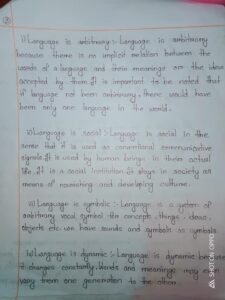 i) Language is arbitrary :- Language is arbitrary
because there is no implicit relation between the
words of a language and their meanings or the ideas
accepted by them. It is important to be noted that
if language not been arbitrary, there would have
been only one language in the world.
ii) Language is social :- Language is social in the
sense that it is used as conventional communicative
signals. It is used by human beings in their actual
life. It is a social institution. It plays in society as
means of nourishing and developing culture.
iii) Language is symbolic :- Language is a system of
arbitrary vocal symbol the concepts, things, ideas,
objects etc. we have sounds and symbols as symbols.
iv) Language is dynamic :- Language is dynamic because
it changes constantly. Words and meanings may even
vary from one generation to the other.
SHOT ON OPPO